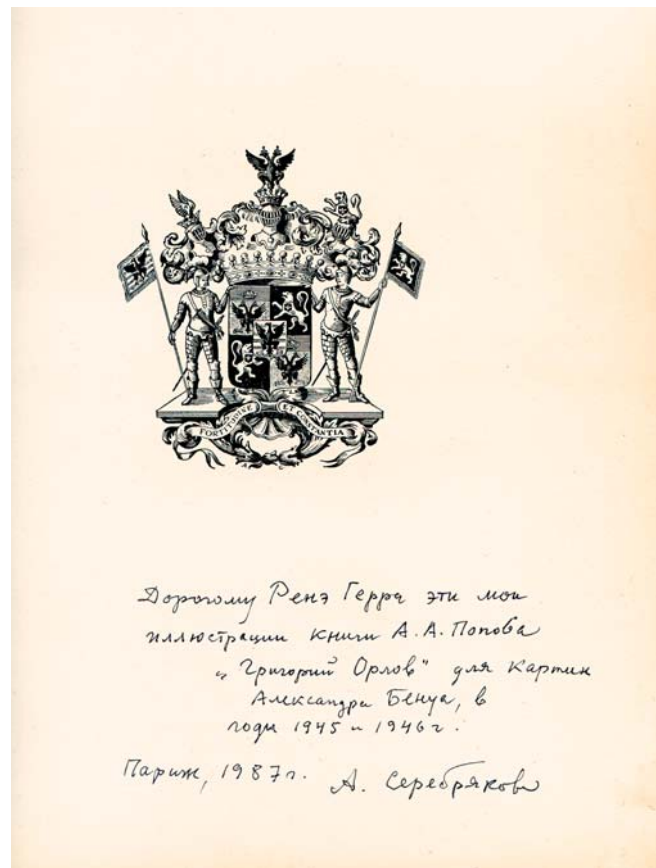 FORTITUDINE ET CONSTANTIA
Дорогому Ренэ Герра эти мои
иллюстрации книги А.А. Попова
„Григорий Орлов" для картин
Александра Бенуа, в
годы 1945 и 1946 г.
Париж, 1987 г.
А. Серебрякова